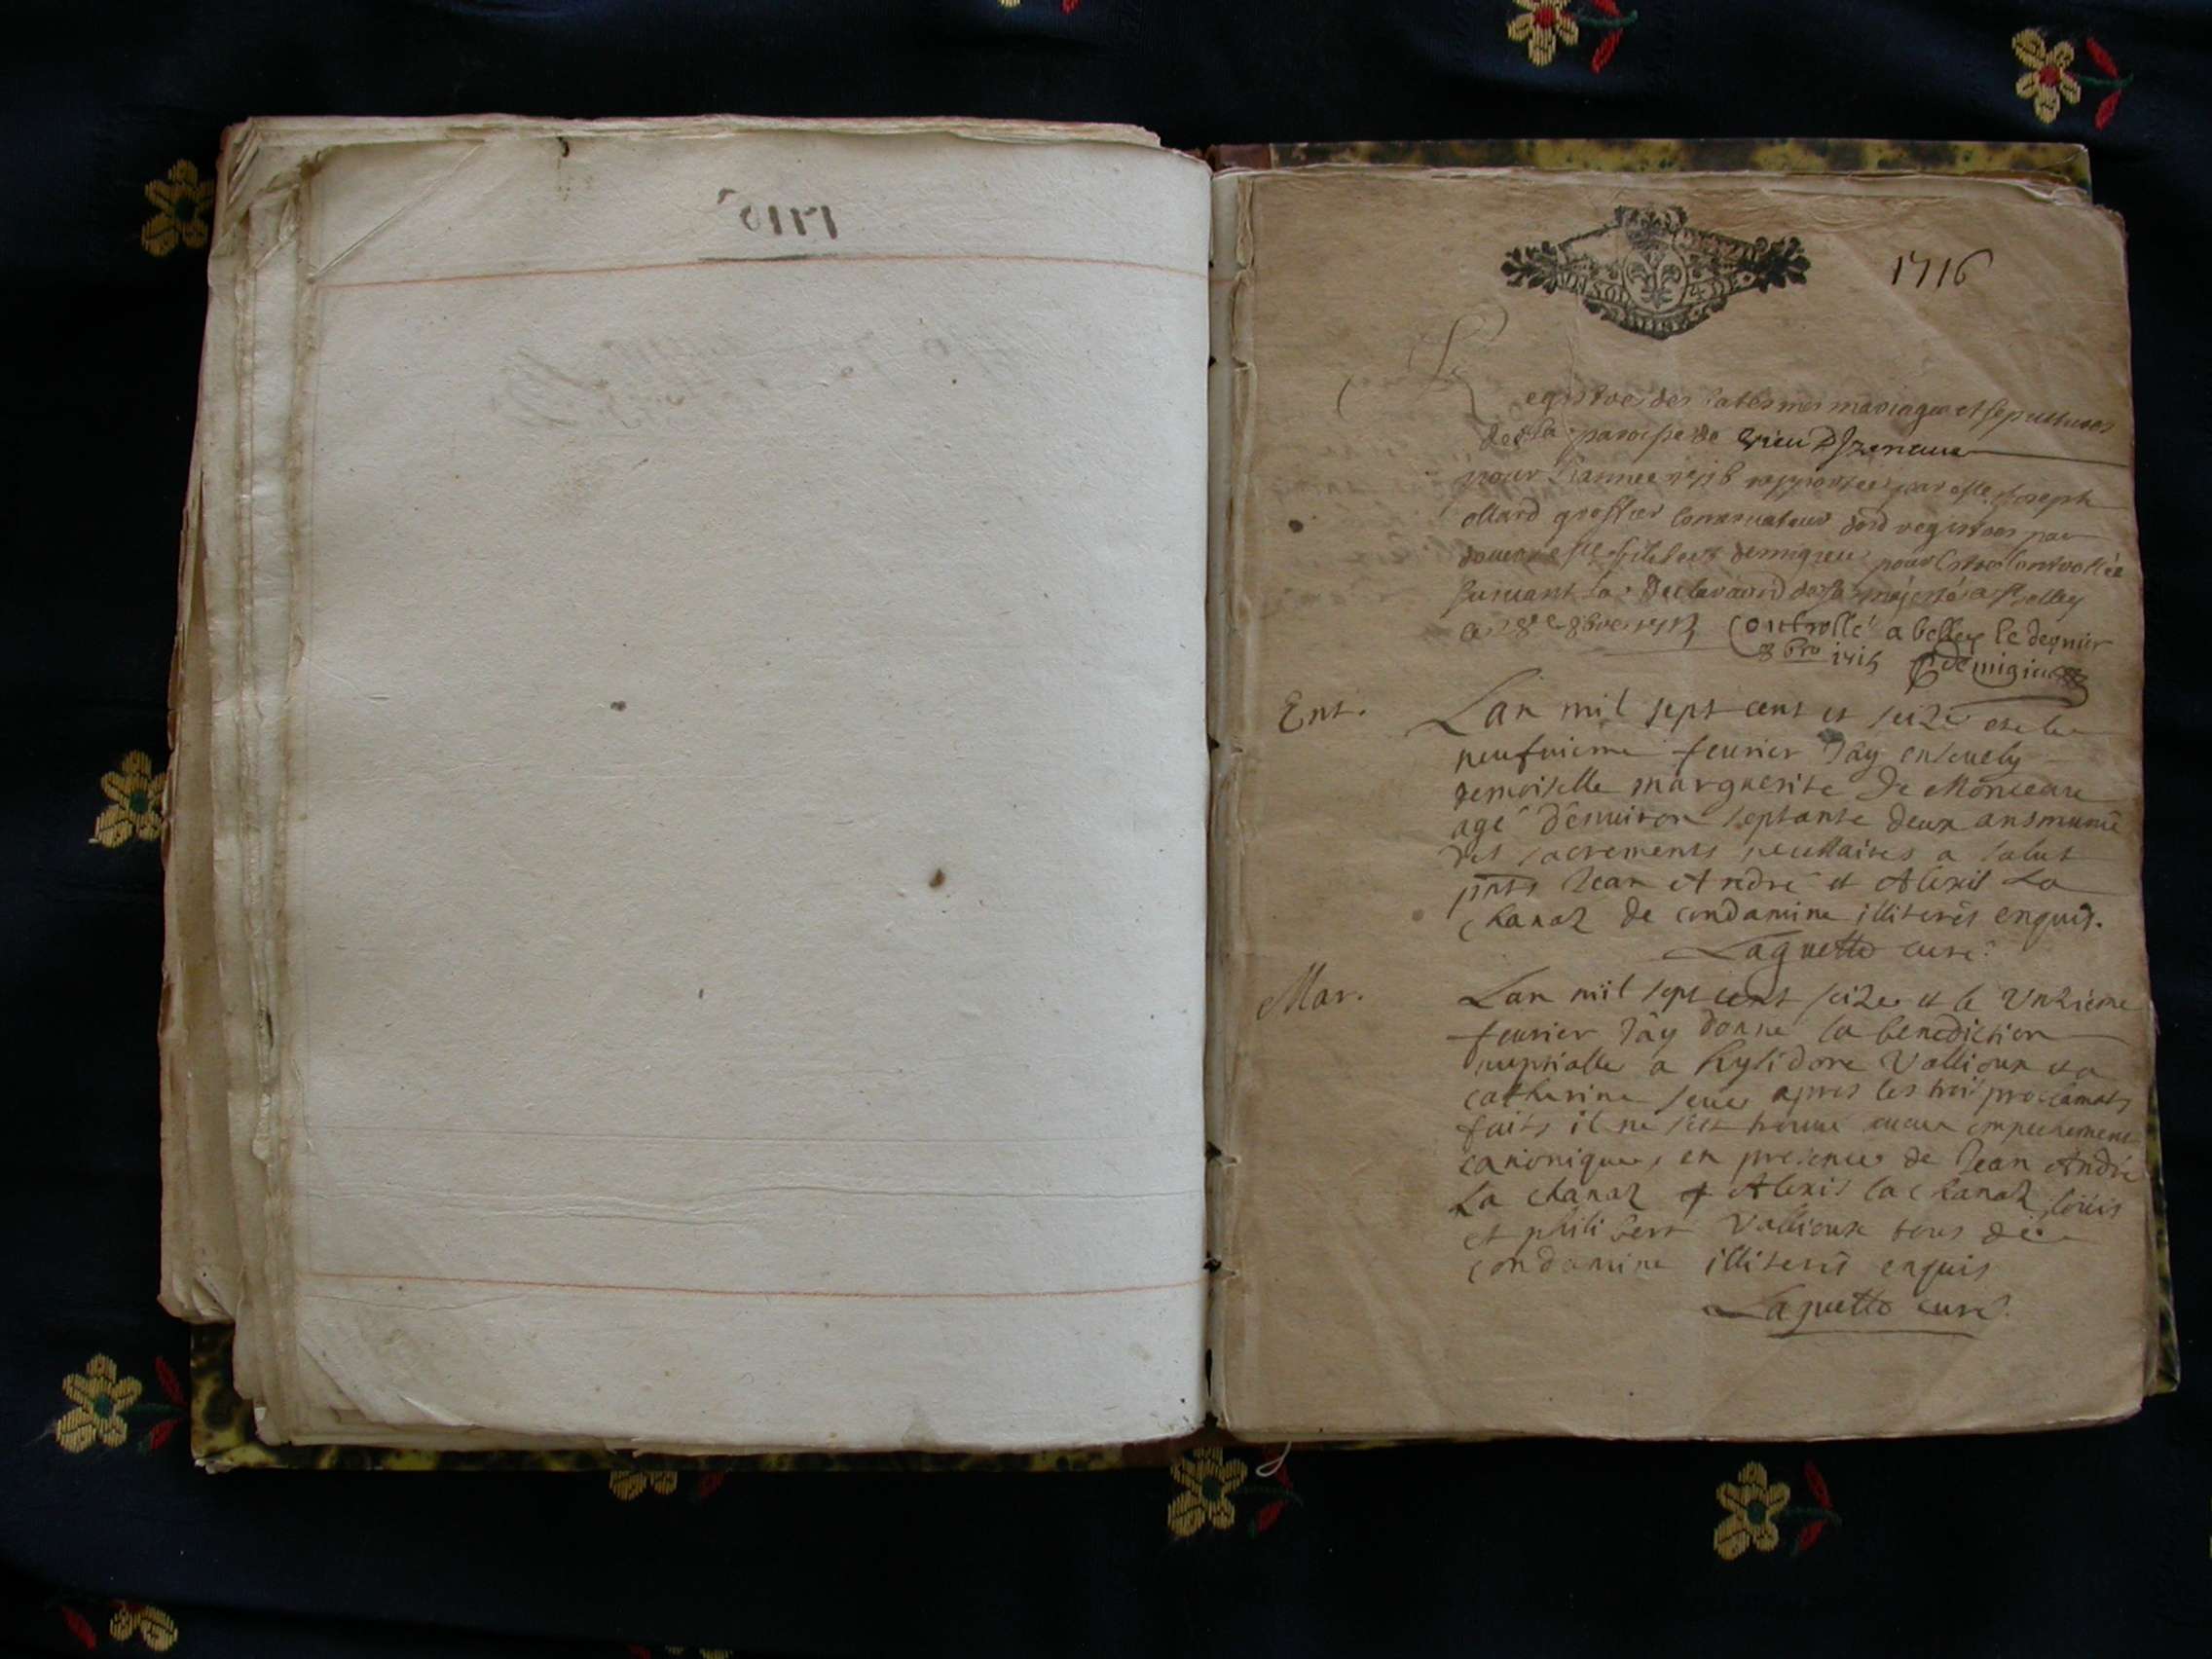 1716
UN SOL 4 DE.
Registre des batesmes mariages et sepultures
de la paroisse de Vieu D Izenave
pour Lannee 1716 rapportee par Joseph
ollard greffier Conservateur desd registres par
pour Estre Controllée
suivant la Declaraon de sa majesté a Belley
le 8bre 1715 Controllé a belley le dernier
8bre 1715 Demigieu
Ent.
Lan mil sept cent et seize et le
neufuieme feurier Jáy enseuely
demoiselle marguerite De Monceau
agé d'enuiron septante deux ans munie
des sacrements necessaires a salut
pnts Jean André et Alexis La
chanaz de condamine illiterés enquis.
Laguette curé.
Mar.
Lan mil sept cent seize et le Vnzieme
feurier Jáy donné la benediction
nuptialle a Vallioux et a
catherine apres les trois proclamats
faits il ne s'est trouué aucun empechement
canonique, en presence de Jean André
La chanaz Alexis la chanaz, loüis
et philibert Vallioux tous de
condamine illiterés enquis
Laguette curé.